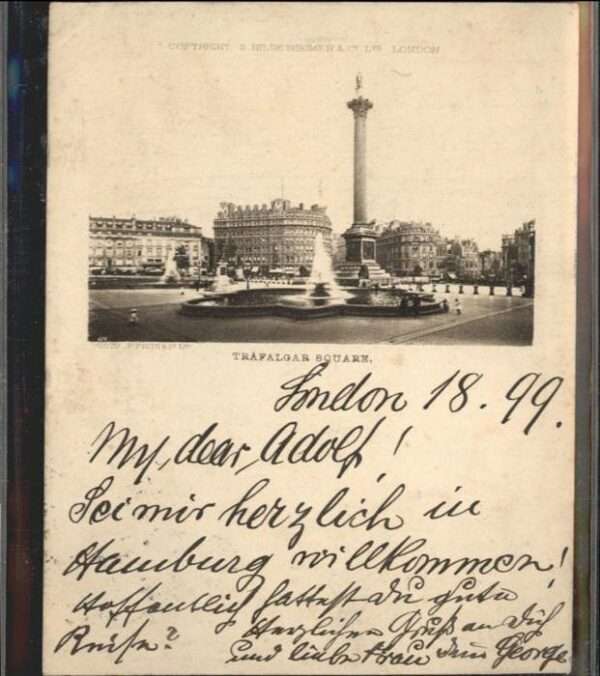 COPYRIGHT S. HILDESHEIMER & Co. Ltd. LONDON
TRAFALGAR SQUARE.
London 18. 99.
My, dear, Adolf!
Sei mir herzlich in
Hamburg willkommen!
Hoffentlich hattest du gute
Reise? Herzlichen Gruß an Dich
und liebe Frau Dein George